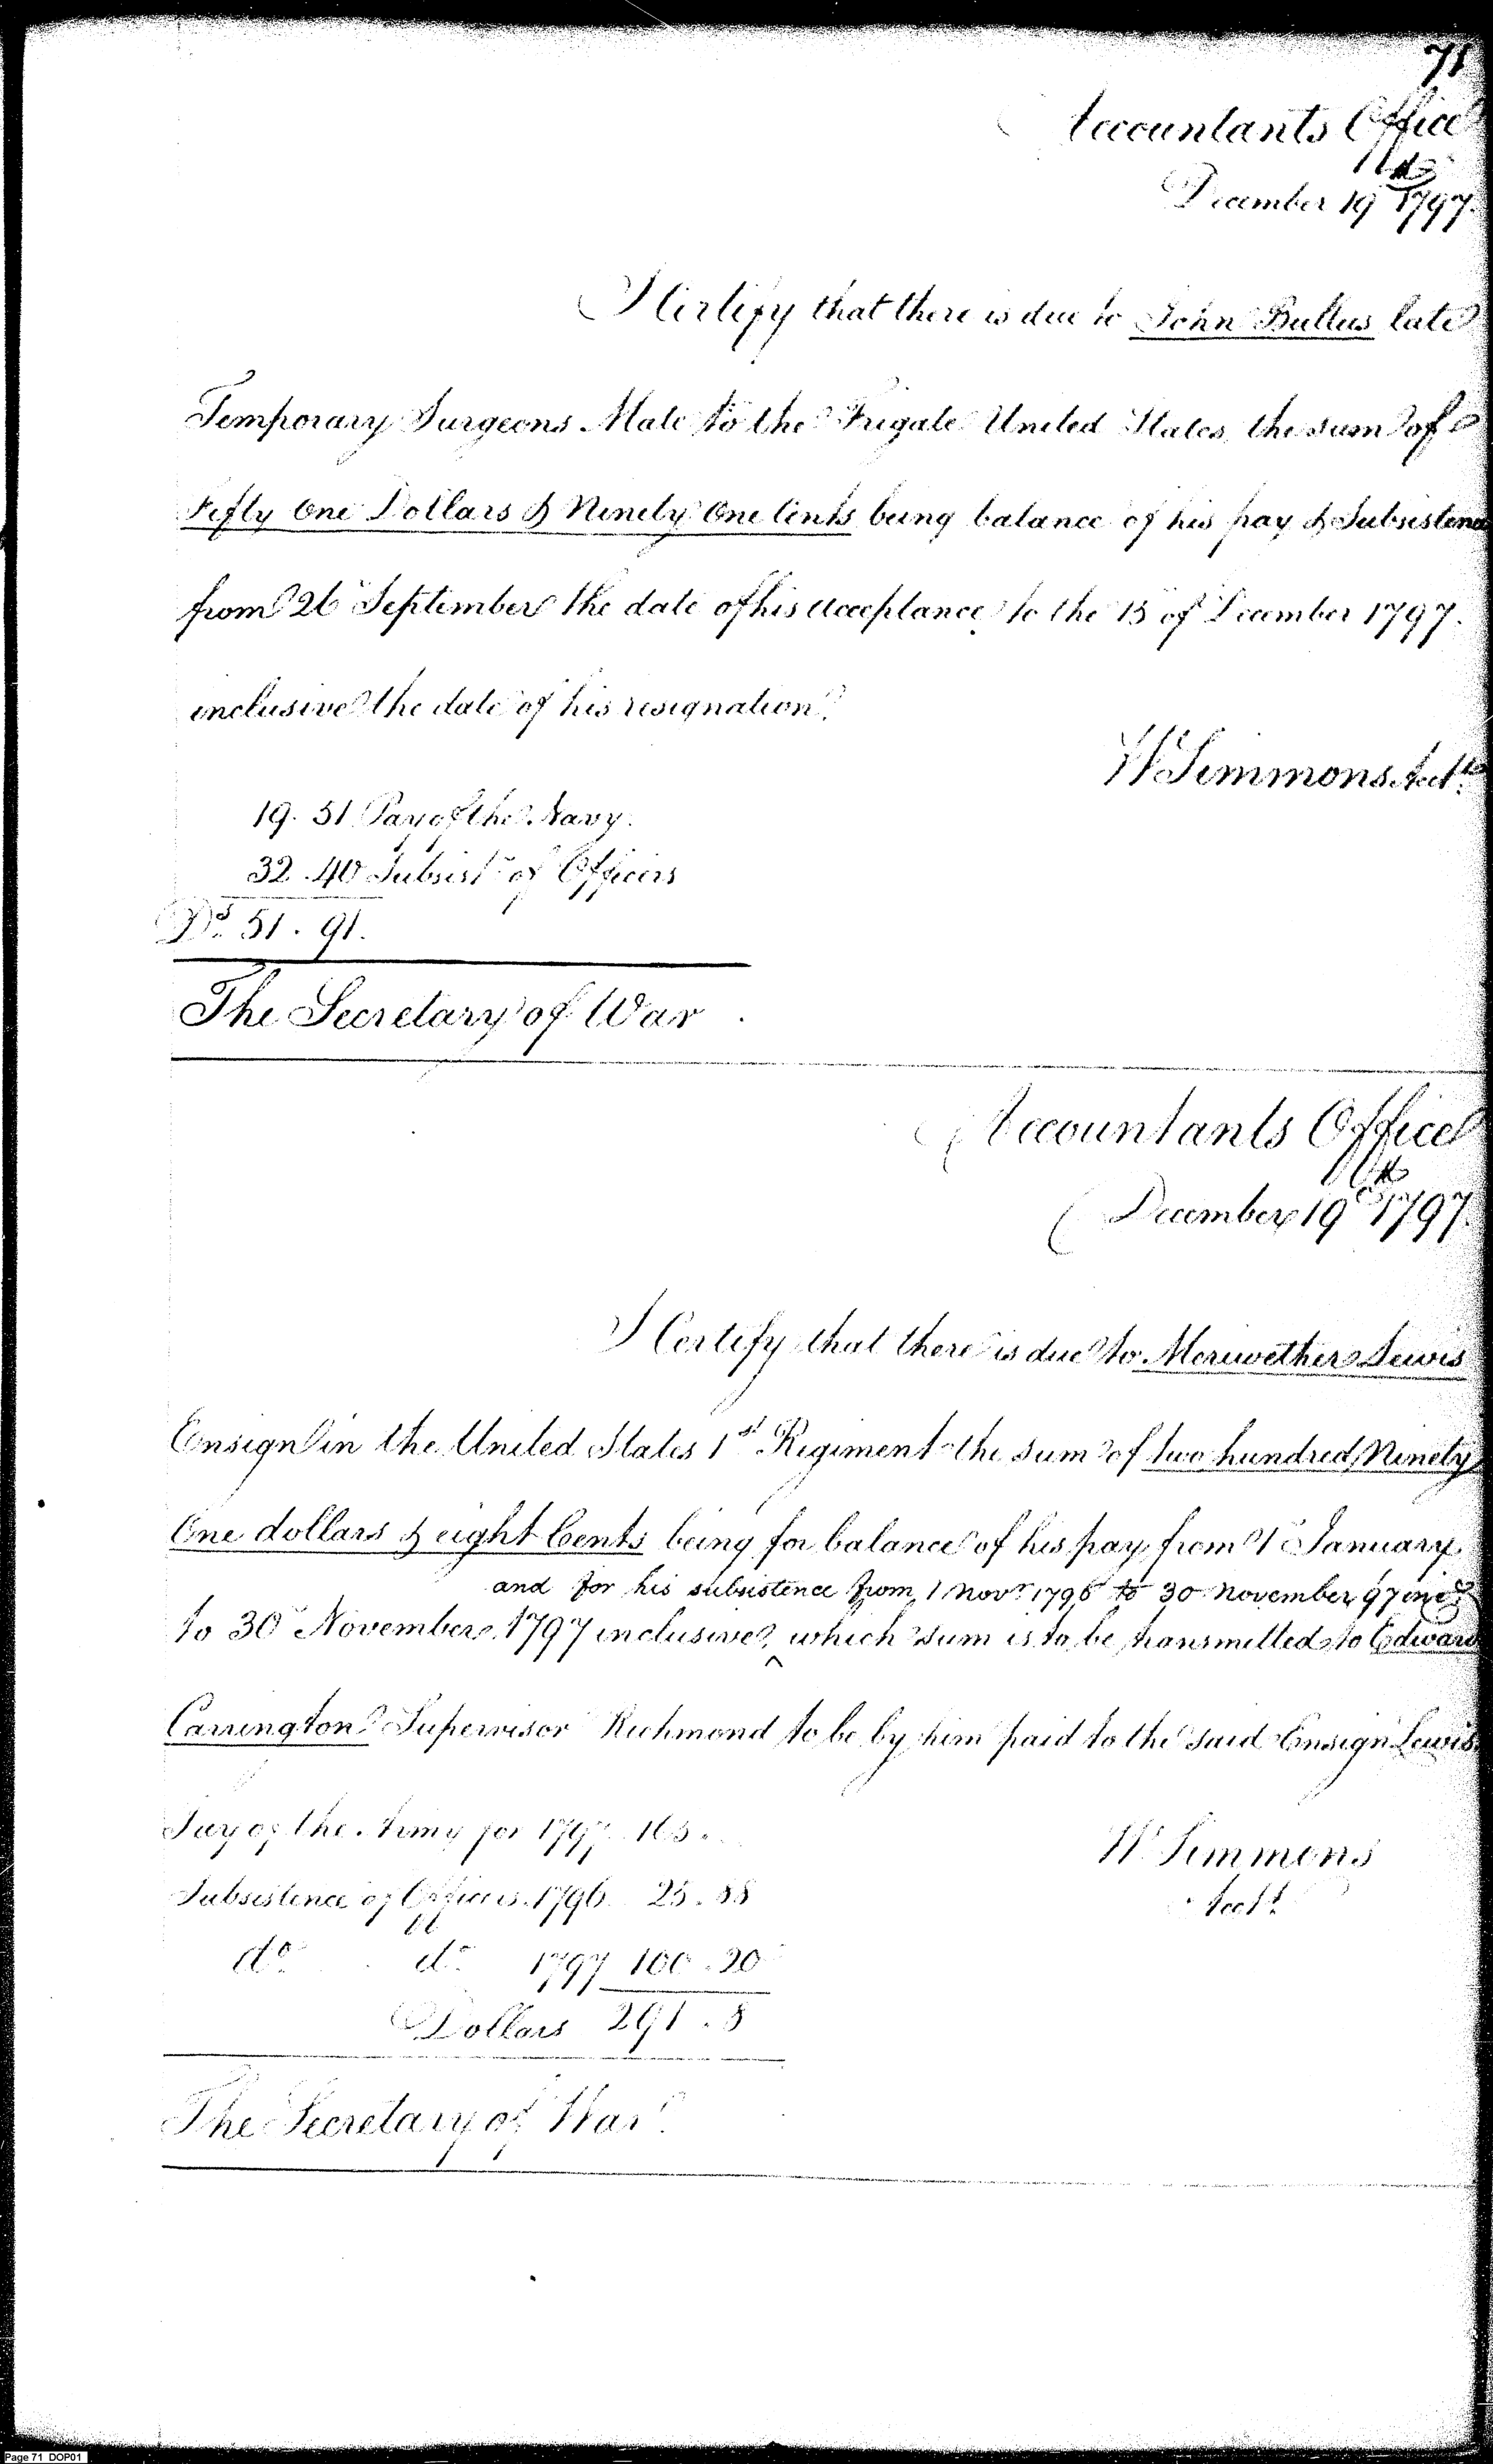 71
Accountants Office
December 19th 1797.
I Certify that there is due to John Bullus late
Temporary Surgeons Mate to the Frigate United States, the sum of
Fifty One Dollars & Ninety One Cents being balance of his pay & Subsistence
from 26 September the date of his acceptance to the 15 of December 1797.
inclusive the date of his resignation.
W Simmons Acctt
19.51 Pay of the Navy.
32.40 Subsistce of Officers
Ds 51.91.
The Secretary of War
Accountants Office
December 19th 1797.
I Certify that there is due to Meriwether Lewis
Ensign in the United States 1st Regiment the sum of two hundred, Ninety
One dollars & eight Cents being for balance of his pay from 1 January
and for his subsistence from 1 Novr 1796 to 30 November 97 incs
to 30 November 1797 inclusive, ^ which sum is to be transmitted to Edward
Carrington Supervisor Richmond to be by him paid to the said Ensign Lewis.
Pay of the Army for 1797 165.
W Simmons
Subsistence of Officers 1796 25.88
Acctt
do do 1797 100.20
Dollars 291.8
The Secretary of War.
Page 71 DOP01